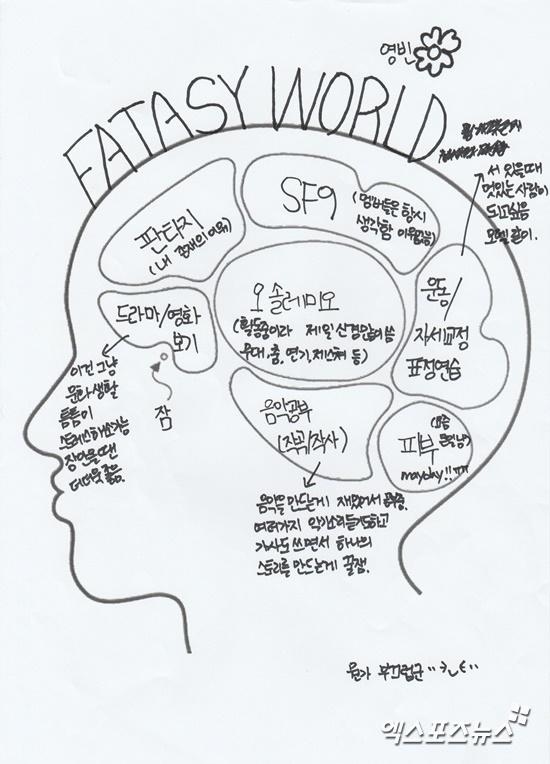 영빈
FATASY WORLD
서 있을때
멋있는 사람이
되고싶음
모델같이.
SF9
(멤버들은 항시
생각함
판타지
(내 존재의 이유)
오 솔레미오
(활동중이라 제일 신경많이씀
무대, 춤, 연기, 제스쳐 등)
운동/
자세교정
표정연습
드라마/영화
보기
이건 그냥
문화생활
틈틈이
스트레스해소가능
장마올땐
더더욱 좋음.
잠
음악공부
(작곡/작사)
피부
(요즘
mayday!!ㅠㅠ
음악을 만드는게 재밌어서 공부중.
여러가지 악기소리듣기도하고
가사도 쓰면서 하나의
스토리를 만드는게 꿀잼.
뭔가 부끄럽군
엑스포츠뉴스